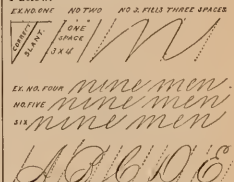 EX. NO. ONE NO TWO NO 3. FILLS THREE SPACES
CORRECT SLANT.
"ONE" SPACE
3 x 4
n
EX. NO. FOUR nine men.
NO. FIVE nine men
SIX nine men
A B C D E